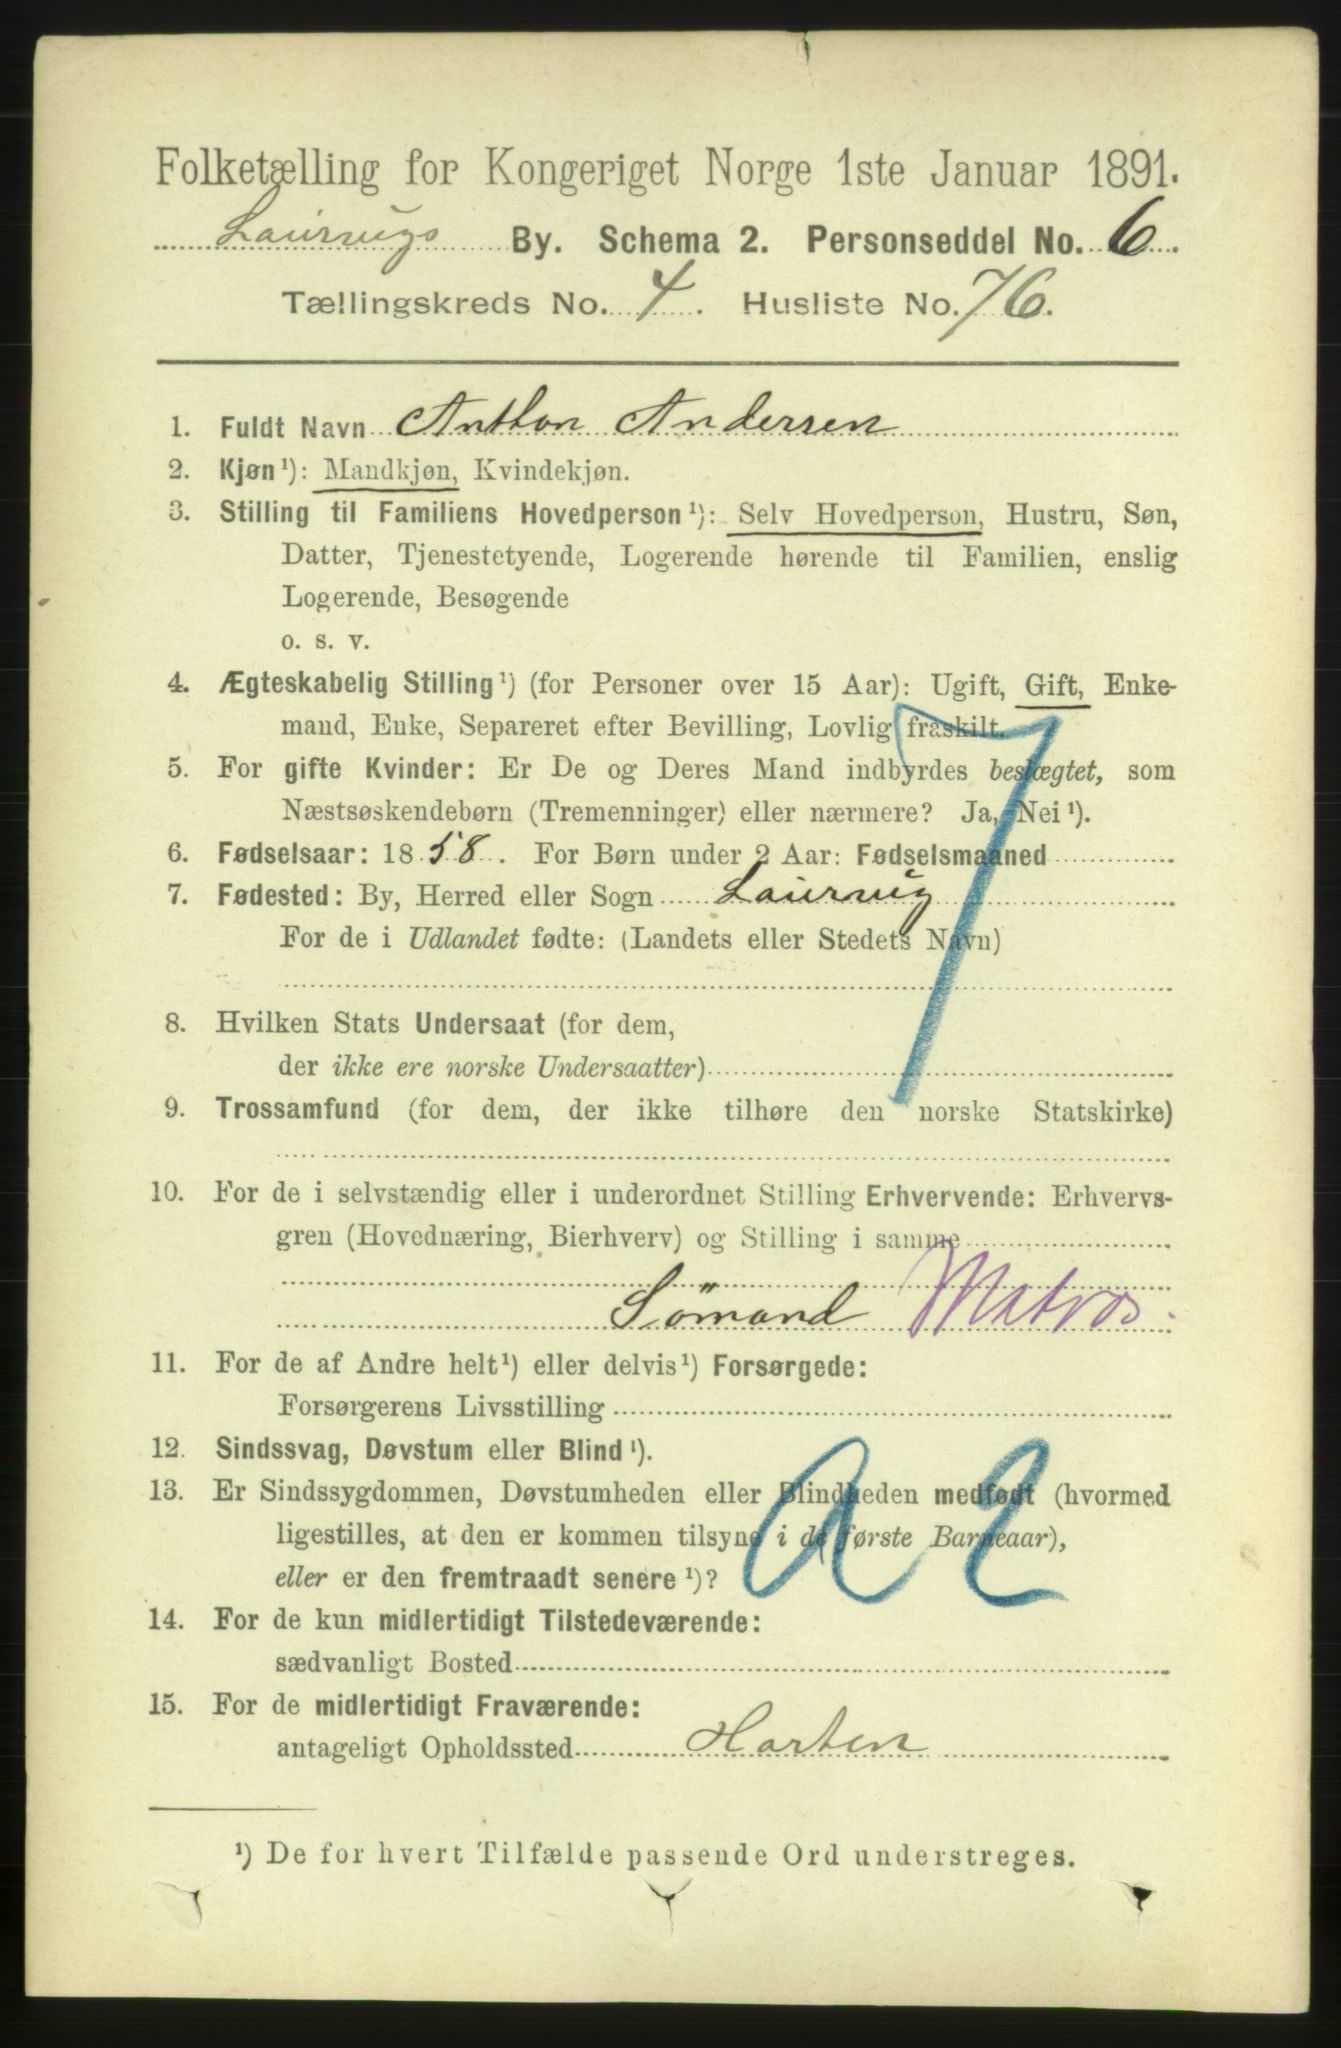 Folketælling for Kongeriget Norge 1ste Januar 1891.
Laurvigs By. Schema 2. Personseddel No. 6.
Tællingskreds No. 4. Husliste No. 76.
1. Fuldt Navn Anthon Andersen
2. Kjøn¹): Mandkjøn, Kvindekjøn.
3. Stilling til Familiens Hovedperson¹): Selv Hovedperson, Hustru, Søn,
Datter, Tjenestetyende, Logerende hørende til Familien, enslig
Logerende, Besøgende
o. s. v.
4. Ægteskabelig Stilling¹) (for Personer over 15 Aar): Ugift, Gift, Enke-
mand, Enke, Separeret efter Bevilling, Lovlig fraskilt.
5. For gifte Kvinder: Er De og Deres Mand indbyrdes beslægtet, som
Næstsøskendebørn (Tremenninger) eller nærmere? Ja, Nei¹).
6. Fødselsaar: 1858. For Børn under 2 Aar: Fødselsmaaned
7. Fødested: By, Herred eller Sogn Laurvig
For de i Udlandet fødte: (Landets eller Stedets Navn)
7
8. Hvilken Stats Undersaat (for dem,
der ikke ere norske Undersaatter)
9. Trossamfund (for dem, der ikke tilhøre den norske Statskirke)
10. For de i selvstændig eller i underordnet Stilling Erhvervende: Erhvervs-
gren (Hovednæring, Bierhverv) og Stilling i samme
Sømand Matros.
11. For de af Andre helt¹) eller delvis¹) Forsørgede:
Forsørgerens Livsstilling
12. Sindssvag, Døvstum eller Blind¹).
13. Er Sindssygdommen, Døvstumheden eller Blindheden medfødt (hvormed
ligestilles, at den er kommen tilsyne i de første Barneaar),
eller er den fremtraadt senere¹)?
a2
14. For de kun midlertidigt Tilstedeværende:
sædvanligt Bosted
15. For de midlertidigt Fraværende:
antageligt Opholdssted Horten
¹) De for hvert Tilfælde passende Ord understreges.